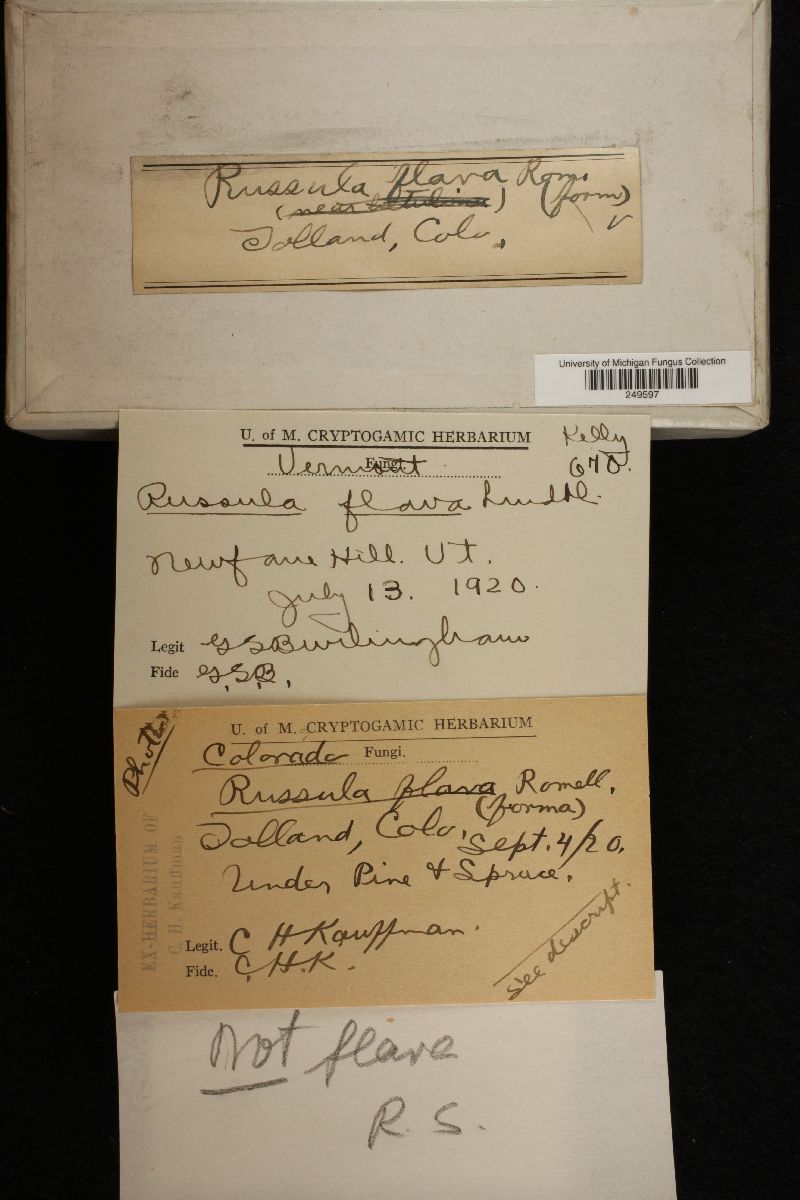 Russula flava Rom.
(near betulina) (form)
Tolland, Colo.
University of Michigan Fungus Collection
249597
U. of M. CRYPTOGAMIC HERBARIUM
Kelly
Fungi.
Vermont
670.
Russula flava
Newfane Hill. Vt.
July 13. 1920.
Legit G S Burlingham
Fide G.S.B.
Photo
U. of M. CRYPTOGAMIC HERBARIUM
Colorado Fungi.
Russula flava Romell.
(forma)
Tolland, Colo. Sept. 4/20.
Under Pine & Spruce.
Legit. C H Kauffman.
Fide. C.H.K.
See descript.
EX-HERBARIUM OF
C. H. Kauffman
Not flava
R. S.